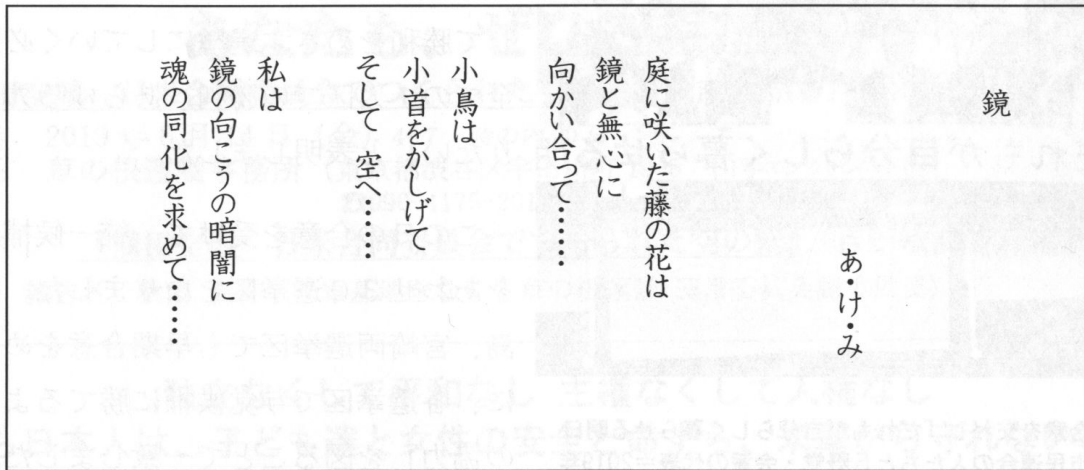 鏡
あ・け・み
庭に咲いた藤の花は
鏡と無心に
向かい合って……
小鳥は
小首をかしげて
そして 空へ……
私は
鏡の向こうの暗闇に
魂の同化を求めて……